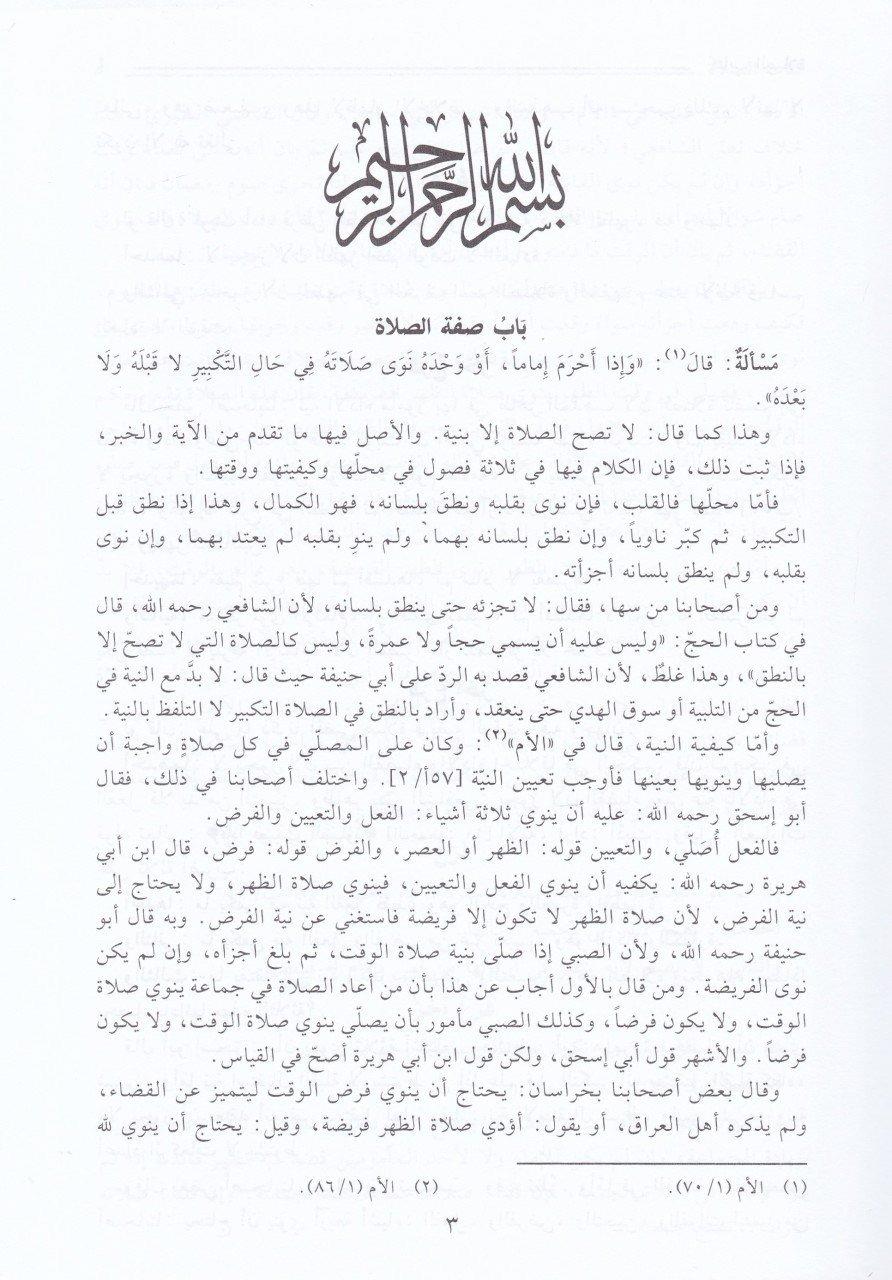 بسم الله الرحمن الرحيم
بَابُ صفة الصلاة
مَسْأَلَةٌ: قالَ(١): «وَإِذا أَحْرَمَ إِماماً، أَوْ وَحْدَهُ نَوَى صَلَاتَهُ فِي حَالِ التَّكْبِيرِ لا قَبْلَهُ وَلَا
بَعْدَهُ».
وهذا كما قال: لا تصح الصلاة إلا بنية. والأصل فيها ما تقدم من الآية والخبر،
فإذا ثبت ذلك، فإن الكلام فيها في ثلاثة فصول في محلّها وكيفيتها ووقتها.
فأمّا محلّها فالقلب، فإن نوى بقلبه ونطقَ بلسانه، فهو الكمال، وهذا إذا نطق قبل
التكبير، ثم كبّر ناوياً، وإن نطق بلسانه بهما، ولم ينوِ بقلبه لم يعتد بهما، وإن نوى
بقلبه، ولم ينطق بلسانه أجزأته.
ومن أصحابنا من سها، فقال: لا تجزئه حتى ينطق بلسانه، لأن الشافعي رحمه الله، قال
في كتاب الحجّ: «وليس عليه أن يسمي حجاً ولا عمرةً، وليس كالصلاة التي لا تصحّ إلا
بالنطق»، وهذا غلطٌ، لأن الشافعي قصد به الردّ على أبي حنيفة حيث قال: لا بدَّ مع النية في
الحجّ من التلبية أو سوق الهدي حتى ينعقد، وأراد بالنطق في الصلاة التكبير لا التلفظ بالنية.
وأمّا كيفية النية، قال في «الأم»(٢): وكان على المصلّي في كل صلاةٍ واجبة أن
يصليها وينويها بعينها فأوجب تعيين النيّة [٥٧أ/ ٢]. واختلف أصحابنا في ذلك، فقال
أبو إسحق رحمه الله: عليه أن ينوي ثلاثة أشياء: الفعل والتعيين والفرض.
فالفعل أُصَلّي، والتعيين قوله: الظهر أو العصر، والفرض قوله: فرض، قال ابن أبي
هريرة رحمه الله: يكفيه أن ينوي الفعل والتعيين، فينوي صلاة الظهر، ولا يحتاج إلى
نية الفرض، لأن صلاة الظهر لا تكون إلا فريضة فاستغني عن نية الفرض. وبه قال أبو
حنيفة رحمه الله، ولأن الصبي إذا صلّى بنية صلاة الوقت، ثم بلغ أجزأه، وإن لم يكن
نوى الفريضة. ومن قال بالأول أجاب عن هذا بأن من أعاد الصلاة في جماعة ينوي صلاة
الوقت، ولا يكون فرضاً، وكذلك الصبي مأمور بأن يصلّي ينوي صلاة الوقت، ولا يكون
فرضاً. والأشهر قول أبي إسحق، ولكن قول ابن أبي هريرة أصحّ في القياس.
وقال بعض أصحابنا بخراسان: يحتاج أن ينوي فرض الوقت ليتميز عن القضاء،
ولم يذكره أهل العراق، أو يقول: أؤدي صلاة الظهر فريضة، وقيل: يحتاج أن ينوي لله
(١) الأم (٧٠/١). (٢) الأم (٨٦/١).
٣